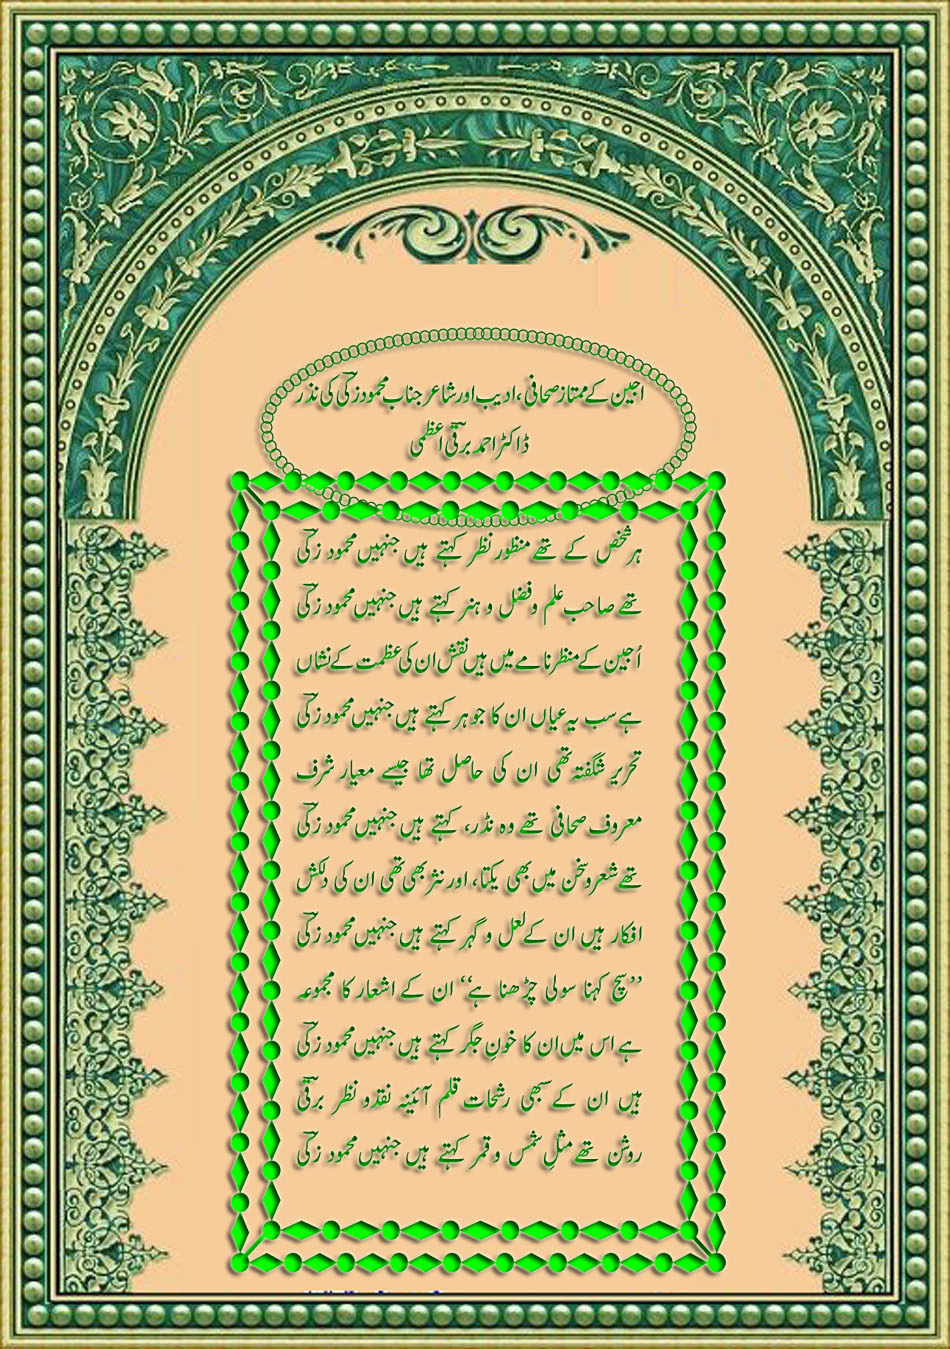 اجین کے ممتاز صحافی، ادیب اور شاعر جناب محمود زکیؔ کی نذر
ڈاکٹر احمد برقیؔ اعظمی
ہر شخص کے تھے منظورِ نظر کہتے ہیں جنہیں محمود زکیؔ
تھے صاحب علم و فضل و ہنر کہتے ہیں جنہیں محمود زکیؔ
اُجین کے منظرنامے میں ہیں نقش ان کی عظمت کے نشاں
ہے سب پہ عیاں ان کا جوہر کہتے ہیں جنہیں محمود زکیؔ
تحریر شگفتہ تھی ان کی حاصل تھا جسے معیارِ شرف
معروف صحافی تھے وہ نڈر، کہتے ہیں جنہیں محمود زکیؔ
تھے شعر و سخن میں بھی یکتا، اور نثر بھی تھی ان کی دلکش
افکار ہیں ان کے لعل و گہر کہتے ہیں جنہیں محمود زکیؔ
’’سچ کہنا سولی چڑھنا ہے‘‘ ان کے اشعار کا مجموعہ
ہے اس میں ان کا خونِ جگر کہتے ہیں جنہیں محمود زکیؔ
ہیں ان کے سبھی رشحات قلم آئینہ نقد و نظر برقیؔ
روشن تھے مثلِ شمس و قمر کہتے ہیں جنہیں محمود زکیؔ